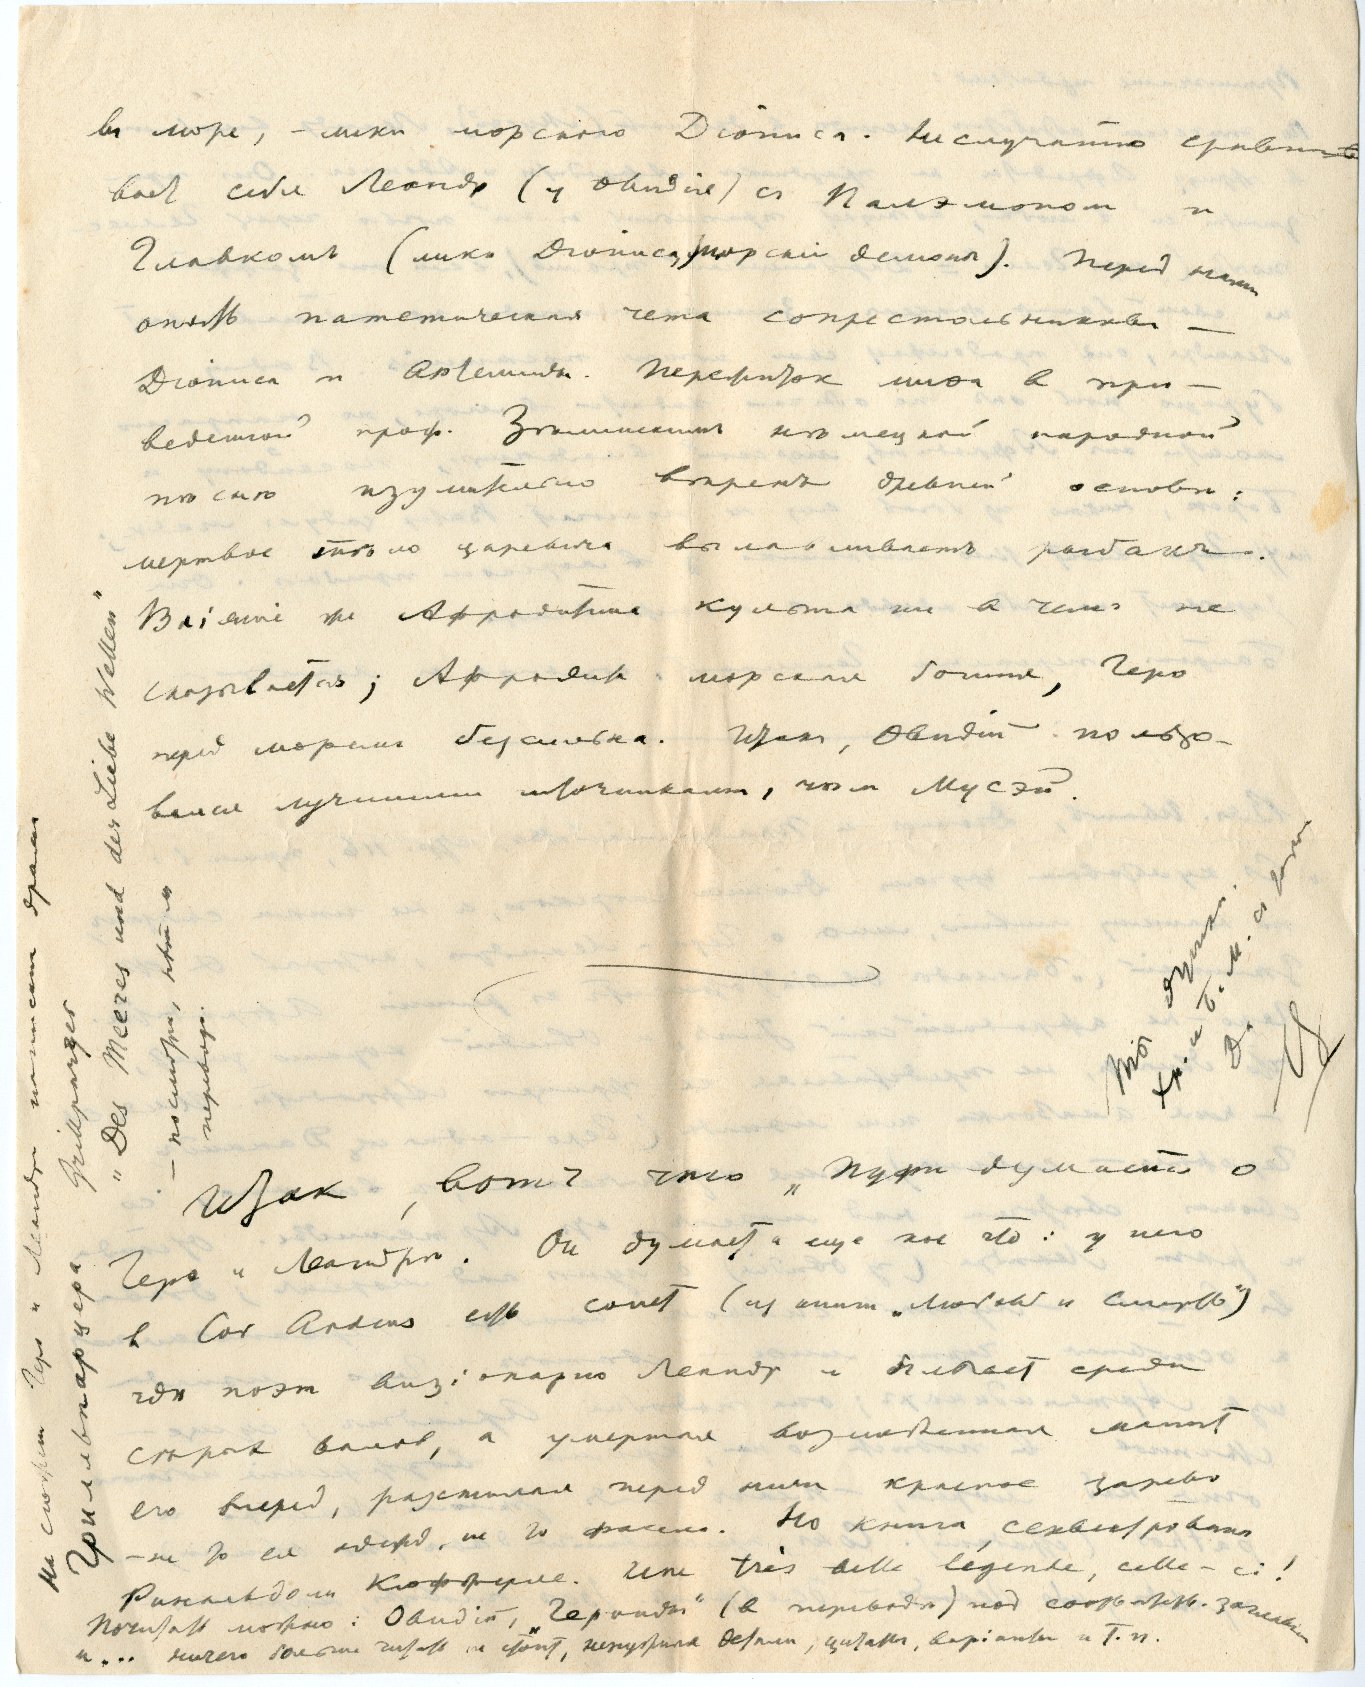 въ море, – лики морского Діониса. Неслучайно сравни-
ваетъ себя Леандр (у Овидія) съ Палэмоном и
Главкомъ (лики Діониса, морскіе демоны). Перед нами
опять патетическая чета сопрестольниковъ –
Діониса и Артемиды. Пережиток мифа в при-
веденной проф. Зѣлинскимъ нѣмецкой народной
пѣснѣ изумительно вѣренъ древней основѣ:
мертвое тѣло царевича вылавливаетъ рыбакъ.
Вліяніе же Афродитина культа ни в чемъ не
сказывается; Афродита морская богиня, Геро
перед моремъ безсильна. Итакъ, Овидій пользо-
вался лучшими источниками, чѣм Мусэй.
Твоя
Хр. и Б. М. с
Итак, вотъ что „Пуфи думаетъ о
Геро и Леандрѣ. Он думаетъ и еще кое что: у него
в Cor Ardens есть сонет (из книги „Любовь и Смерть")
гдѣ поэт визіонарно Леандр и плывет среди
сѣрых валов, а умершая возлюбленная манит
его вперед, расстилая перед ним красное зарево
– не то ея одежд, не то факела. Но книга секвестрована
Ринальдом Кюфферле. Une très belle légende, celle-ci!
Почитать можно: Овидій, „Героиды" (в переводѣ) под соотвѣтств. заглавіем
и... ничего больше читать не стоит, ненужныя детали, цитаты, варіанты и т. п.
На сюжет Геро и Леандра написана драма
Grillparzer
Грильпарцера
„Des Meeres und der Liebe Wellen"
– посмотри, нѣт ли
перевода.